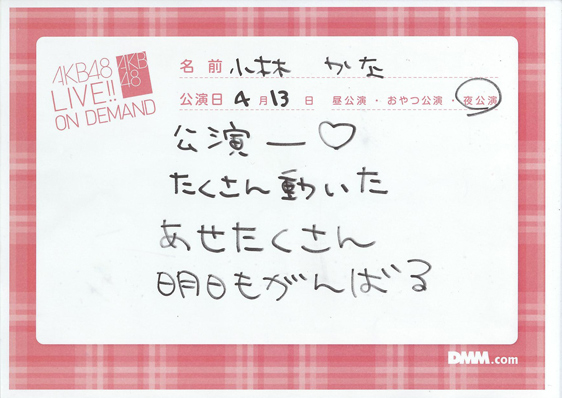 AKB48
LIVE!!
ON DEMAND
AKB
48
名前 小林 かな
公演日 4月13日 昼公演・おやつ公演・夜公演
公演ー♡
たくさん動いた
あせたくさん
明日もがんばる
DMM.com